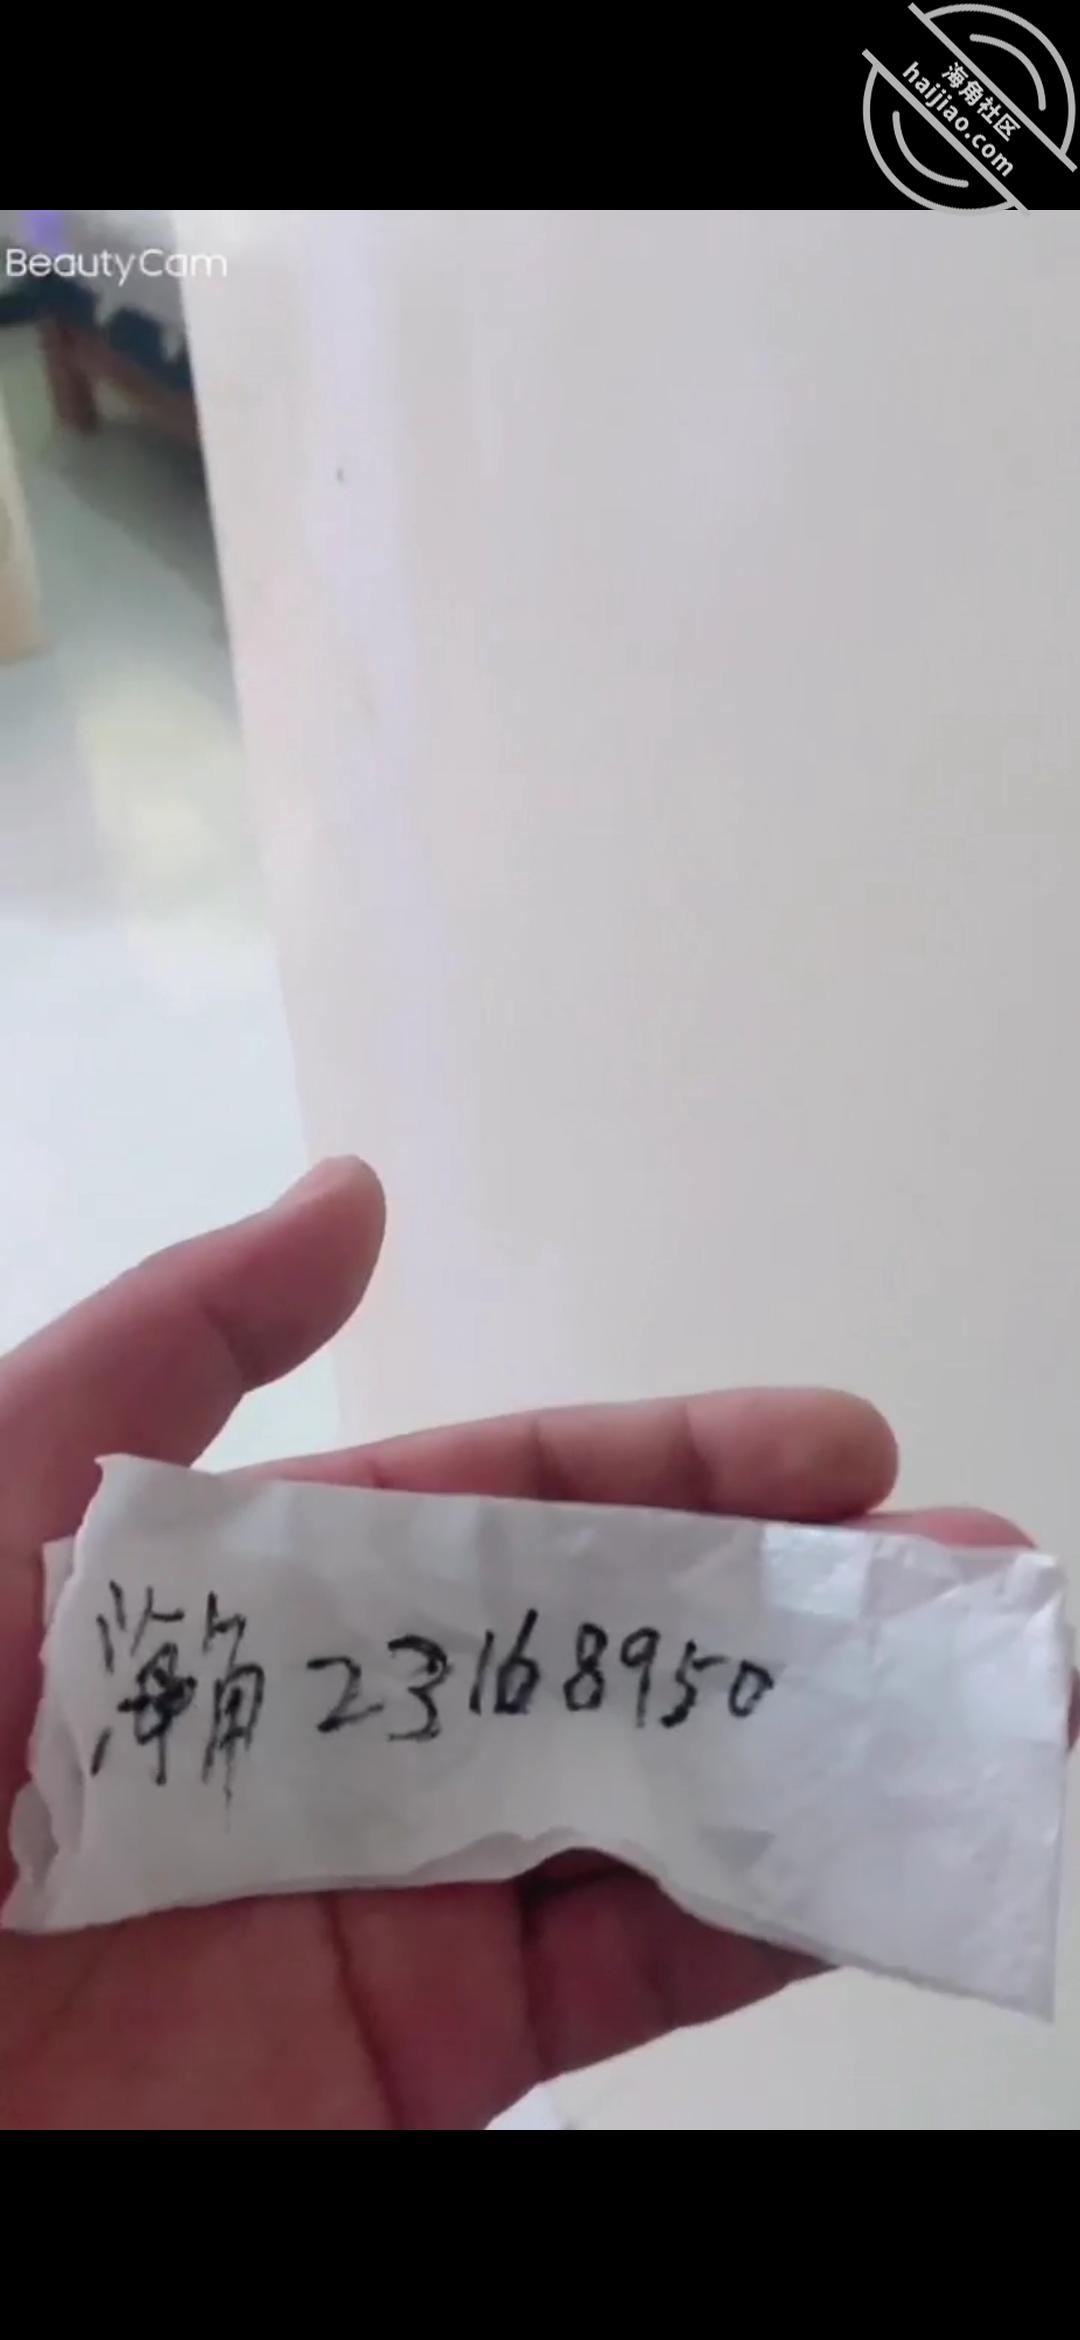 海角社区
haijiao.com
BeautyCam
海角 23168950